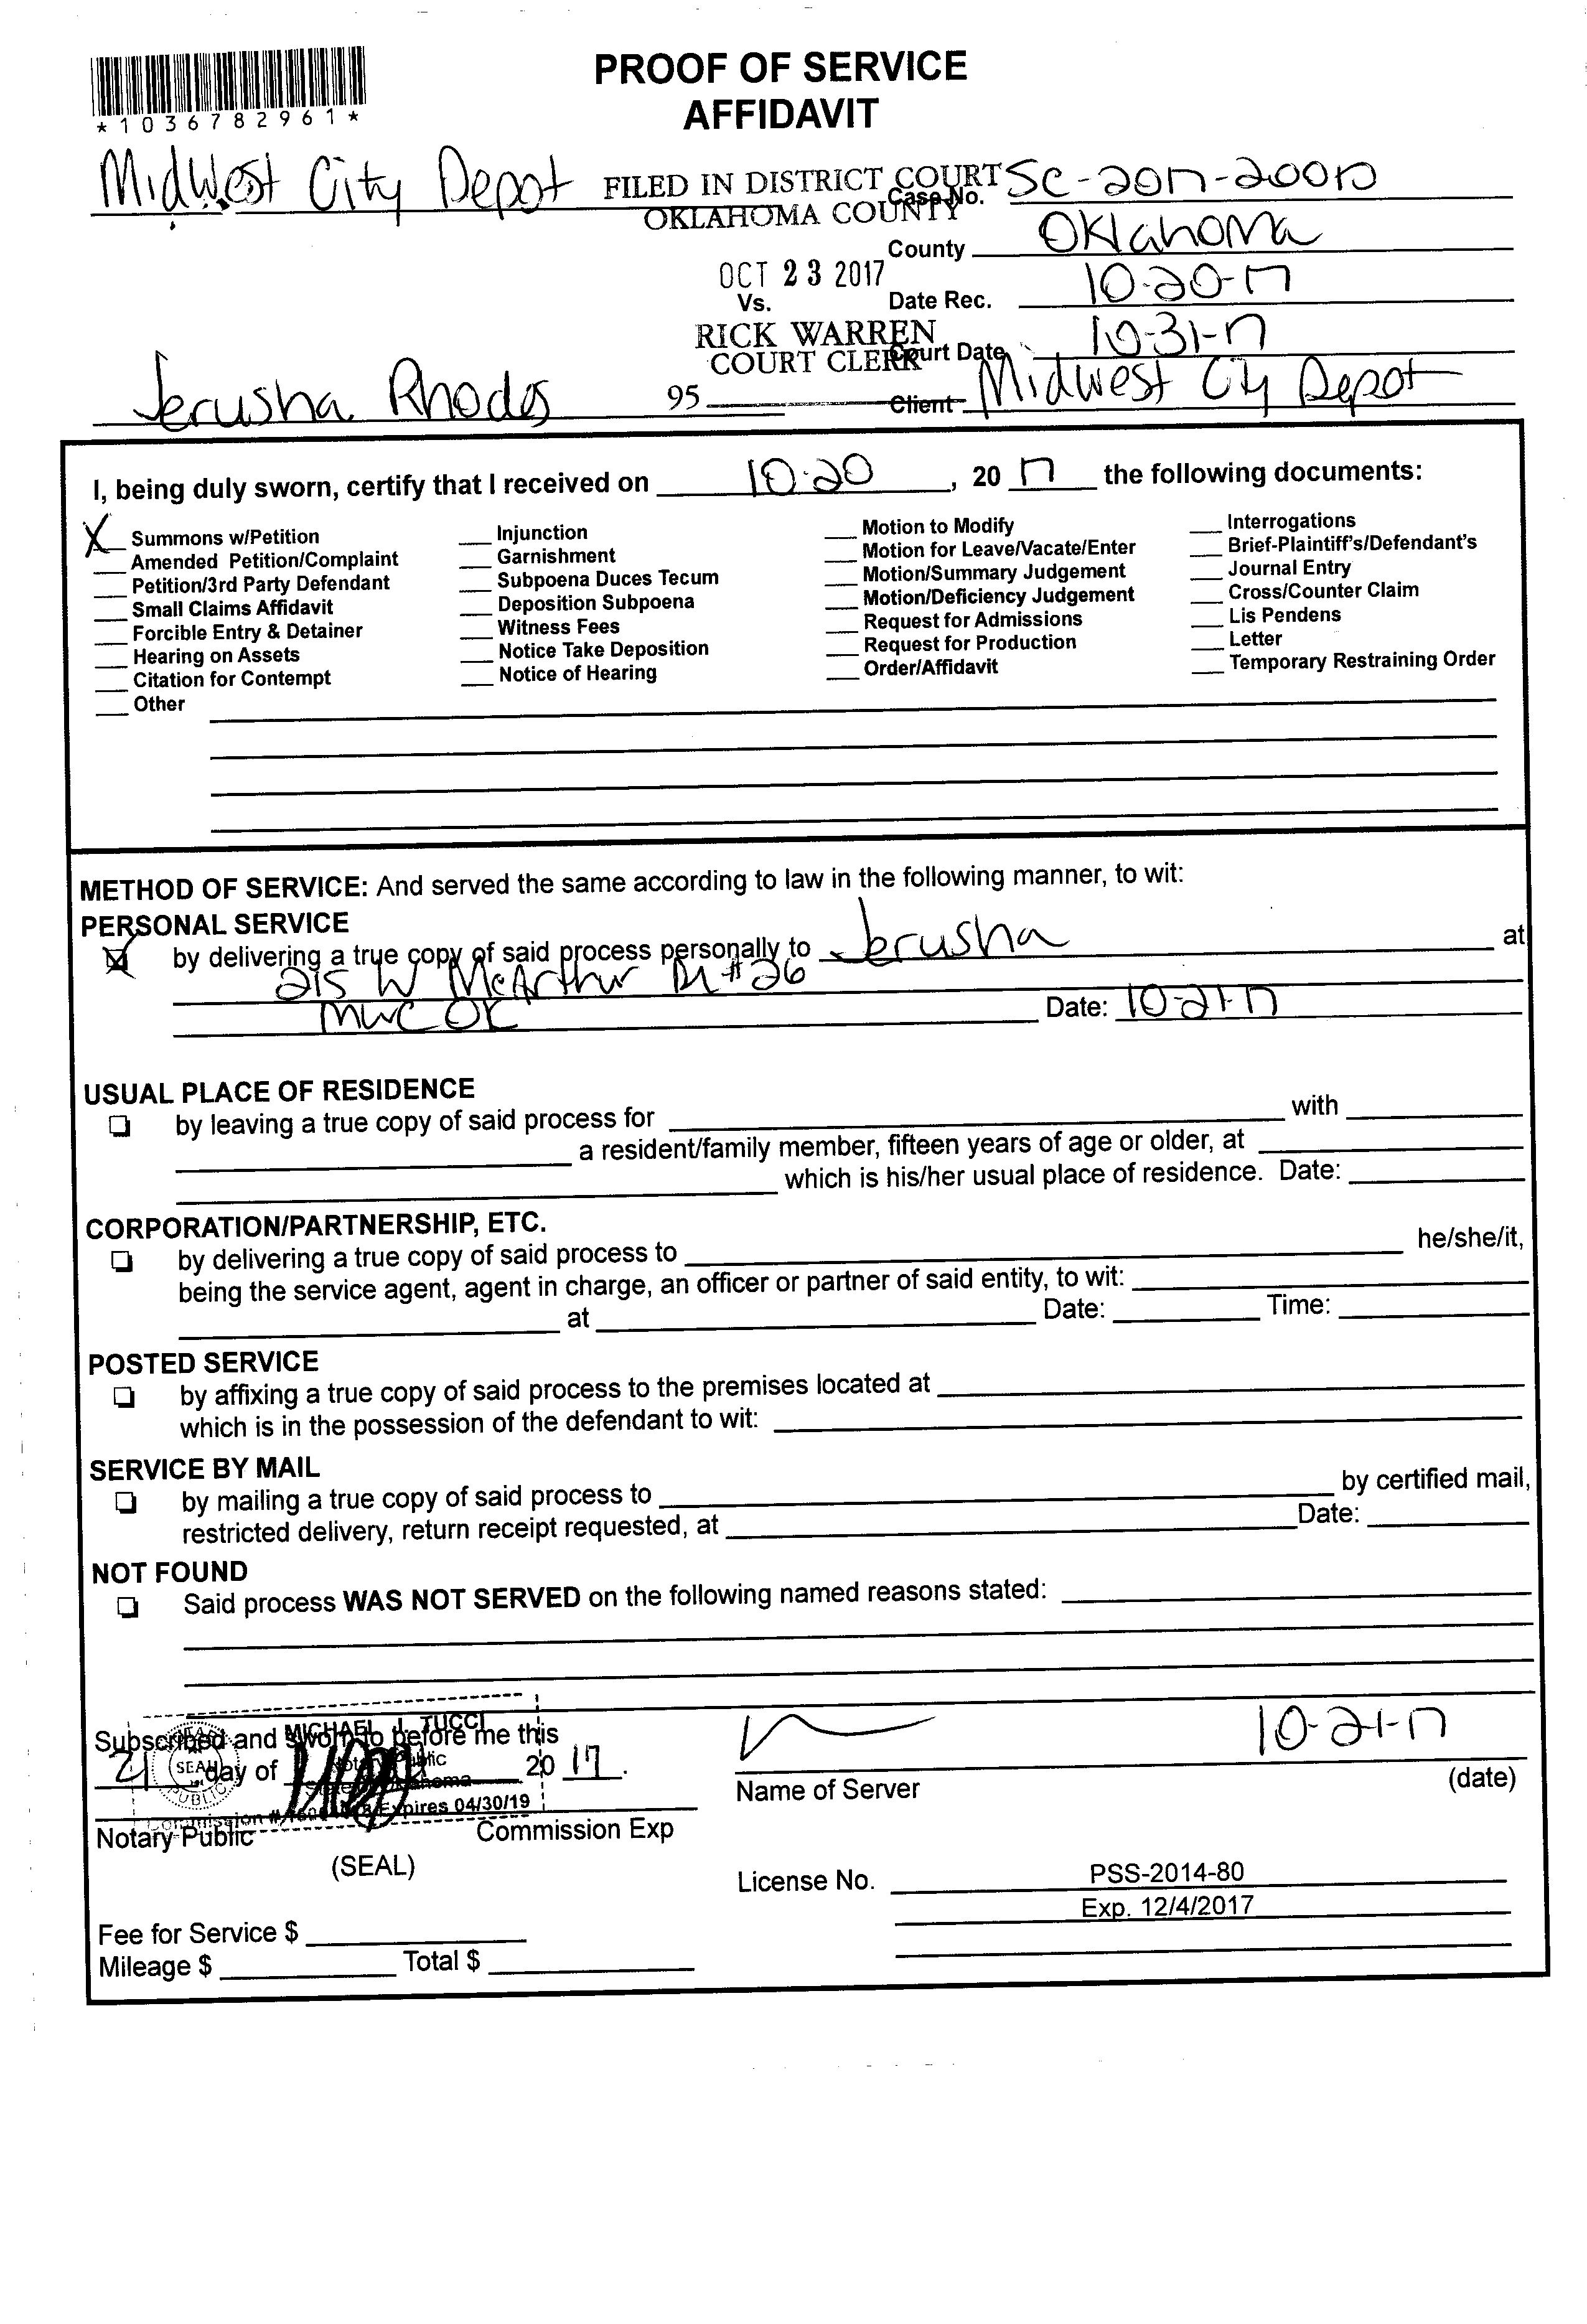 PROOF OF SERVICE
AFFIDAVIT
*1036782961*
Midwest City Depot
FILED IN DISTRICT COURT
OKLAHOMA COUNTY
Case No. SC-2017-20017
County Oklahoma
OCT 23 2017
Vs.
Date Rec. 10-20-17
RICK WARREN
COURT CLERK
Court Date 10-31-17
Jerusha Rhodes
95
Client Midwest City Depot
I, being duly sworn, certify that I received on 10-20, 20 17 the following documents:
X Summons w/Petition
Amended Petition/Complaint
Petition/3rd Party Defendant
Small Claims Affidavit
Forcible Entry & Detainer
Hearing on Assets
Citation for Contempt
Other
Injunction
Garnishment
Subpoena Duces Tecum
Deposition Subpoena
Witness Fees
Notice Take Deposition
Notice of Hearing
Motion to Modify
Motion for Leave/Vacate/Enter
Motion/Summary Judgement
Motion/Deficiency Judgement
Request for Admissions
Request for Production
Order/Affidavit
Interrogations
Brief-Plaintiff's/Defendant's
Journal Entry
Cross/Counter Claim
Lis Pendens
Letter
Temporary Restraining Order
METHOD OF SERVICE: And served the same according to law in the following manner, to wit:
PERSONAL SERVICE
X by delivering a true copy of said process personally to Jerusha at
215 W McArthur Dr #26
MWC OK Date: 10-21-17
USUAL PLACE OF RESIDENCE
by leaving a true copy of said process for with
a resident/family member, fifteen years of age or older, at
which is his/her usual place of residence. Date:
CORPORATION/PARTNERSHIP, ETC.
by delivering a true copy of said process to he/she/it,
being the service agent, agent in charge, an officer or partner of said entity, to wit:
at Date: Time:
POSTED SERVICE
by affixing a true copy of said process to the premises located at
which is in the possession of the defendant to wit:
SERVICE BY MAIL
by mailing a true copy of said process to by certified mail,
restricted delivery, return receipt requested, at Date:
NOT FOUND
Said process WAS NOT SERVED on the following named reasons stated:
Subscribed and sworn to before me this
21 day of 20 17.
MICHAEL J. TUCCI
Notary Public
State of Oklahoma
Commission # Expires 04/30/19
SEAL
PUBLIC
Notary Public Commission Exp
(SEAL)
10-21-17
Name of Server (date)
License No. PSS-2014-80
Exp. 12/4/2017
Fee for Service $
Mileage $ Total $